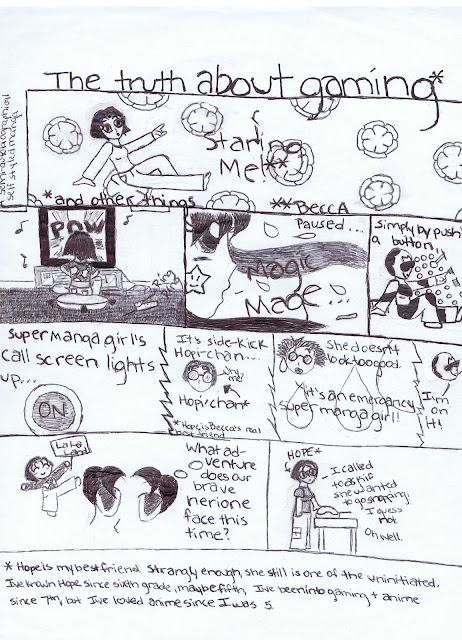 The truth about gaming*
Semi-autobiographical
self styled manga
Starring
Me!**
*and other things
**Becca
POW
Ring
Paused...
Magic
Made...
Simply by pushi
a button,
Super manga girl's
call screen lights
up...
ON
It's side-kick
Hopi-chan...
Why
me!
Hopi-chan*
*Hope is Becca's real
best friend
She doesn't
look too good.
It's an emergancy
super manga girl!!
I'm
on
it!
La La
Land
What ad-
venture
does our
brave
herione
face this
time?
HOPE*
I called
to ask if
she wanted
to go shopping.
I guess
not
Oh well.
* Hope is my best friend. Strangly enough, she still is one of the uninitiated.
I've known Hope since sixth grade, maybe fifth, I've been into gaming + anime
since 7th, but I've loved anime since I was 5.